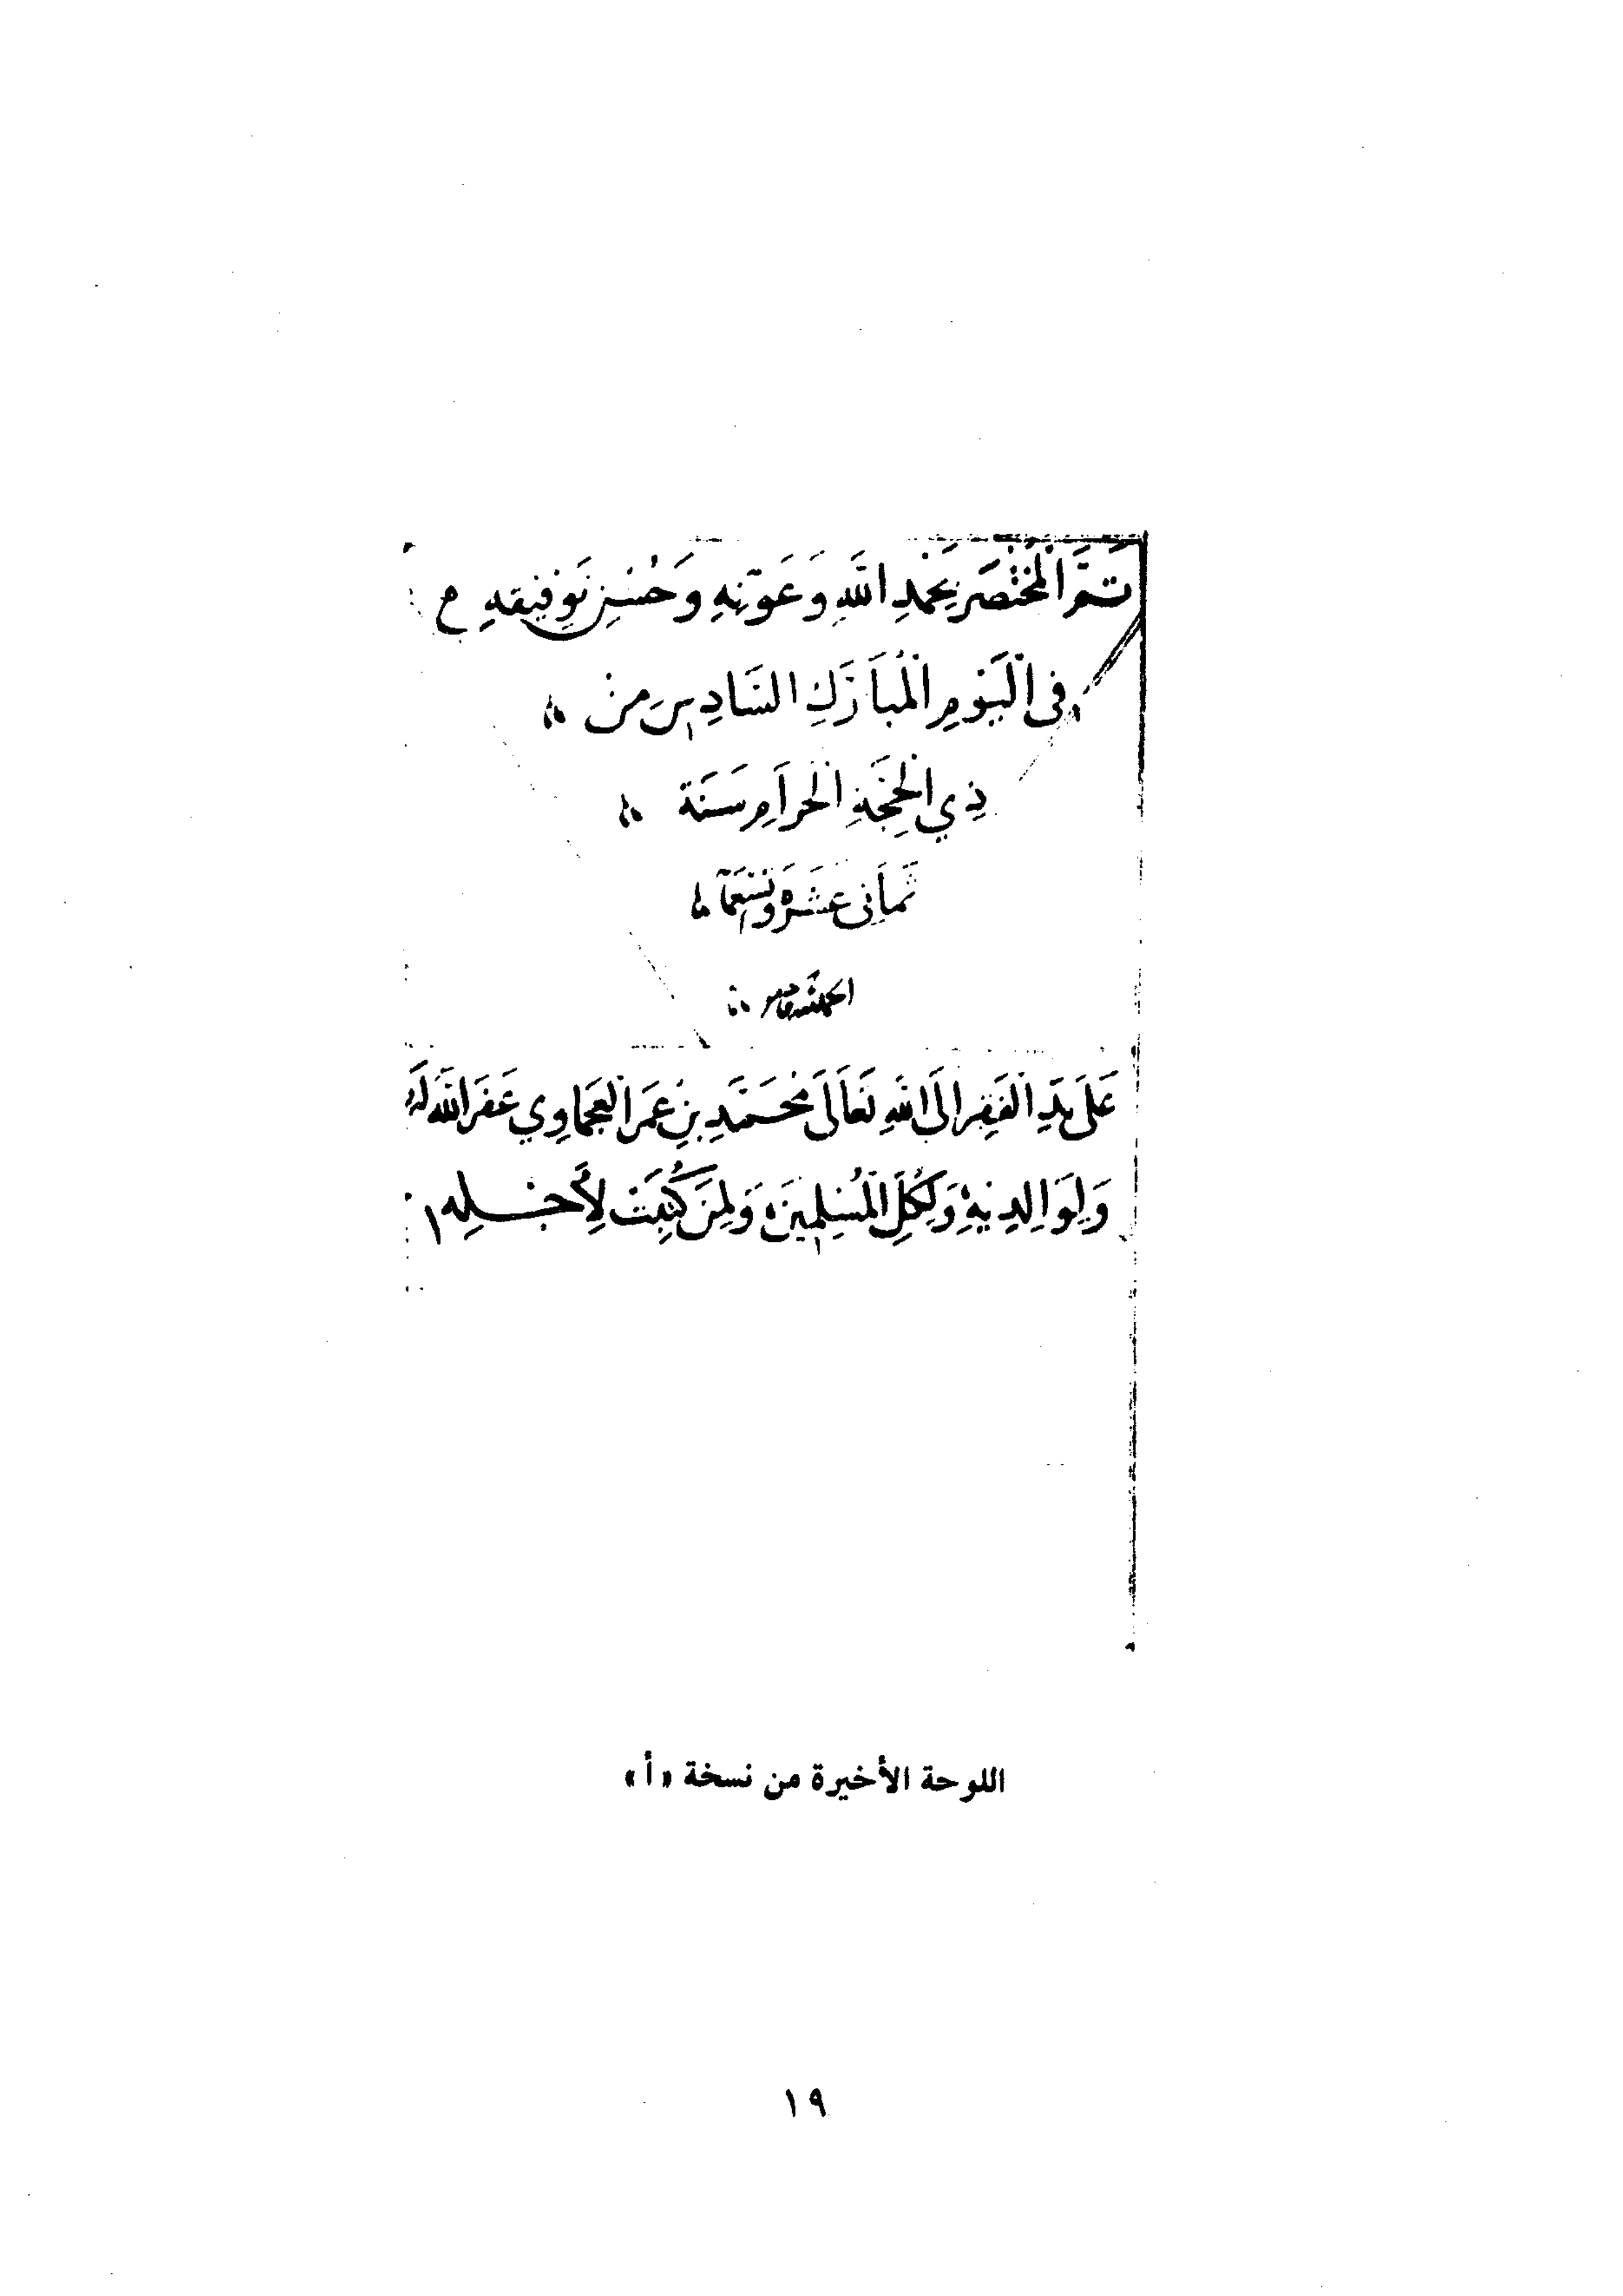 تَمَّ الْمُخْتَصَر بِحَمْدِ اللَّهِ وَعَوْنِهِ وَحُسْنِ تَوْفِيقِهِ
فِى الْيَوْمِ الْمُبَارَكِ السَّادِسِ مِنْ
ذِي الْحِجَّةِ الْحَرَامِ سَنَة
ثَمَانِى عَشَرَه وَتِسْعَمَا
عَلَى يَدِ الْفَقِيرِ إِلَى اللَّهِ تَعَالَى مُحَمَّدِ بْنِ عُمَرَ غَفَرَ اللَّهُ لَهُ
وَلِوَالِدِيْهِ وَلِكُلِّ الْمُسْلِمِينَ وَلِمَنْ كُتِبَتْ لِأَجْلِهِ
اللوحة الأخيرة من نسخة «أ»
١٩